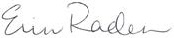 Erin Raden